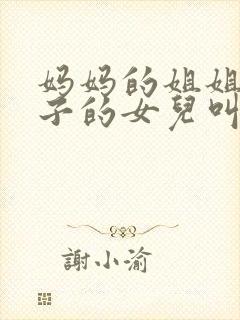 妈妈的姐姐
子的女兒叫
謝小渝